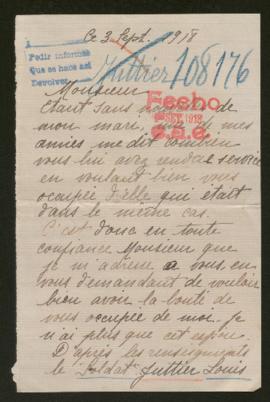 Ce 3 Sept. 1918
Pedir informes
Que se hace así
Devolver
Juttier 108176
Monsieur
Etant sans nouvelles de
Fecho
SET. 1918
mon mari, une de mes
amies me dit combien
vous lui avez rendre service
en voulant bien vous
occupée d'elle qui était
dans le même cas.
C'est donc en toute
confiance Monsieur que
je m'adresse a vous en
vous demandant de vouloir
bien avoir la bonté de
vous occupée de moi. je
n'ai plus que cet espoir
D'après les renseignements
le "Soldat" Juttier Louis